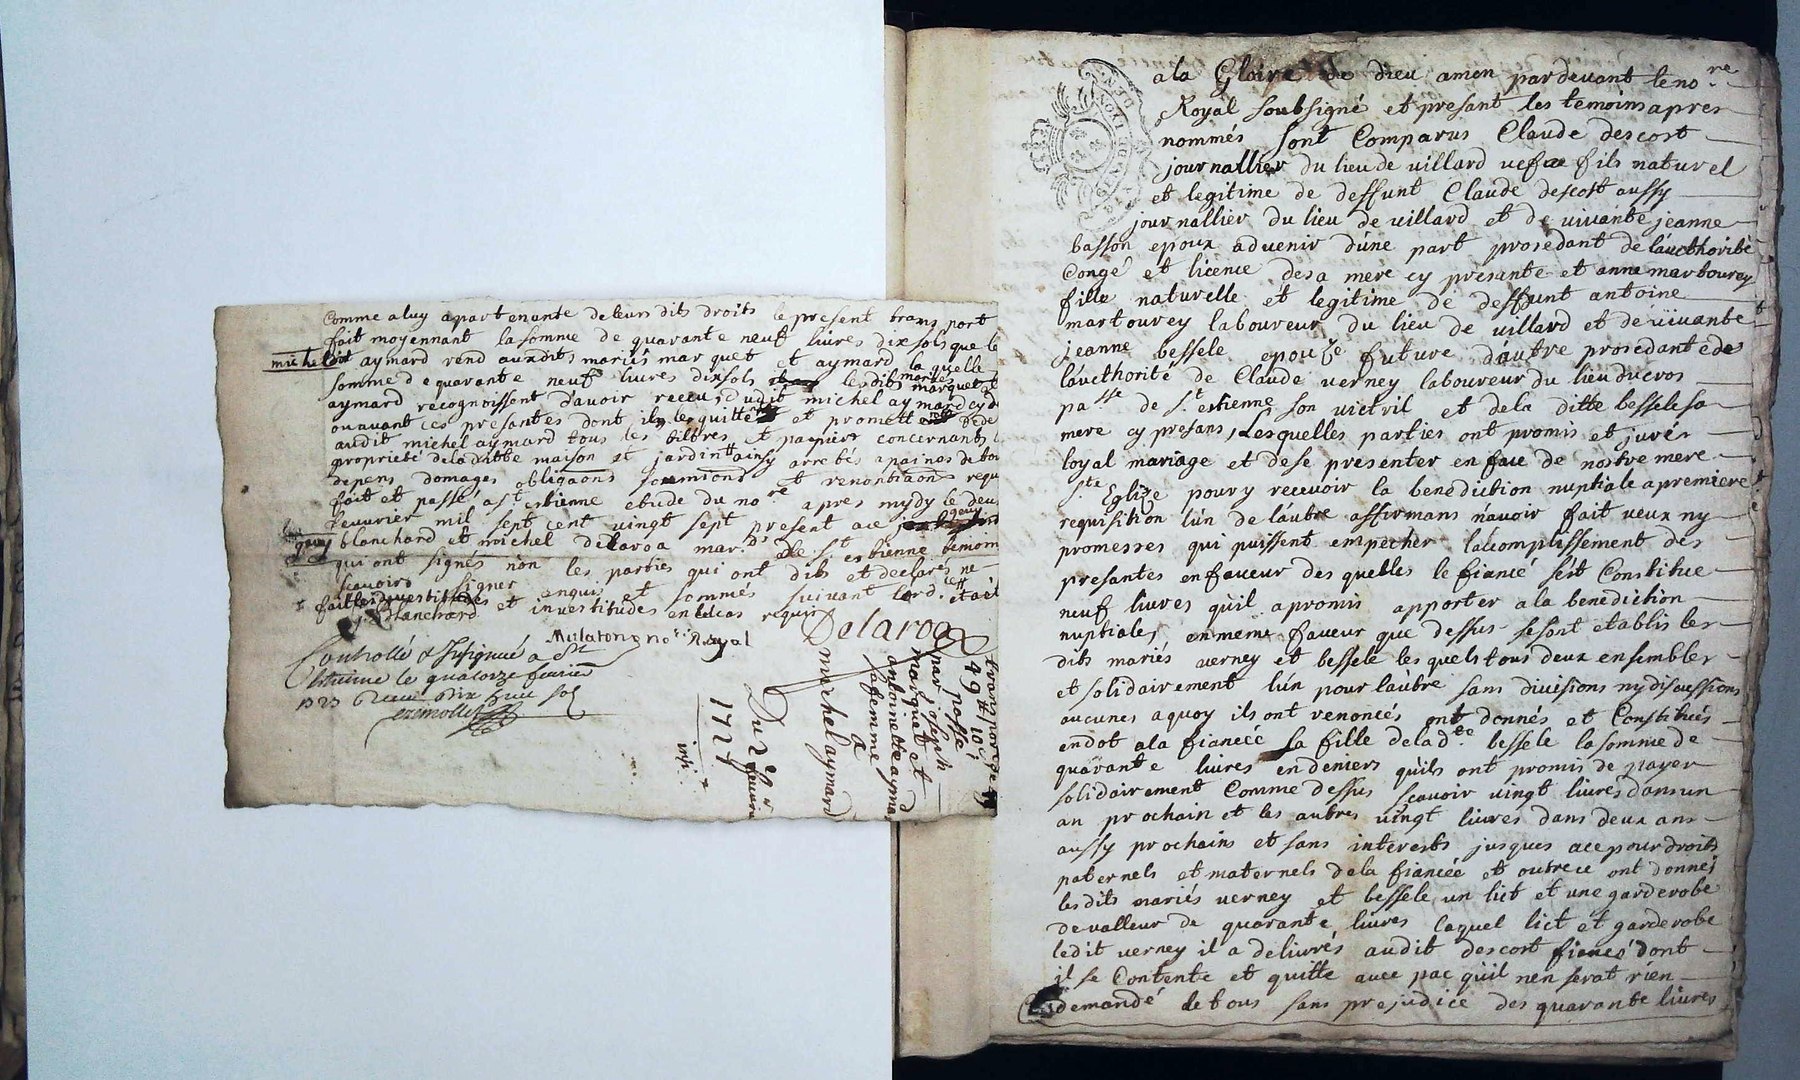 Comme a luy apartenante de leurs dits droits le present transport
fait moyennant la somme de quarante neuf livres dix sols que le
michel dit aymard rend auxdits mariés marquet et aymard la quelle
somme de quarante neuf livres dix sols lesdits mariés marquet et
aymard recognoissent d'avoir receu dudit michel aymard cy d
ou avant ces presantes dont ils le quittent et promettent de de
audit michel aymard tous les tiltres et papiers concernants l
proprieté de la ditte maison et jardin ainsy arrestés a paines de tou
depens domages obligaons soumions et renontiaons requ
fait et passé a st estienne etude du nore apres mydy le deux
feuvrier mil sept cent vingt sept present ace
blanchard et michel delaroa mar.ds de st estienne temoin
qui ont signés non les parties qui ont dits et declarés ne
scavoirs signer enquis et sommés suivant lord.ce
et investitudes en tel cas requis
Blanchard
Delaroa
Mulatong no.re Royal
Controllé & Insignué a St
Estienne le quatorze fevrier
1727 Receu dix huit sol
transport de
49 ₶ 10 s
passé
par joseph
marquet et
antoinette aymard
sa femme
a
michel aymard
Du 2 feuvrier
1727
insi.
DE LYON
a la Gloire de dieu amen pardevant le no.re
Royal soubsigné et presant les temoins apres
nommés sont Comparus Claude descost
journallier du lieu de villard vefve fils naturel
et legitime de deffunt Claude descost aussy
journallier du lieu de villard et de vivante jeanne
basson epoux advenir d'une part prosedant de l'aucthorité
Congé et licence de sa mere cy presante et anne martourey
fille naturelle et legitime de deffunt antoine
martourey laboureur du lieu de villard et de vivante
jeanne bessele epouze future d'autre prosedante de
l'aucthorité de Claude verney laboureur du lieu du cros
pa.sse de s.t estienne son victril et de la ditte bessele sa
mere cy presans, Lesquelles parties ont promis et jurés
loyal mariage et de se presenter en face de nostre mere
s.te Eglize pour y recevoir la benediction nuptiale a premiere
requisition lun de l'autre affirmans n'avoir fait veux ny
promesses qui puissent empecher lacomplissement des
presantes en faveur des quelles le fiancé s'est Constitue
neuf livres qu'il a promis apporter a la benediction
nuptiale, en meme faveur que dessus se sont etablis les
dits mariés verney et bessele les quels tous deux ensembles
et solidairement l'un pour l'autre sans divisions ny discussions
aucunes a quoy ils ont renoncés ont donnés et Constitués
en dot a la fiancée sa fille de la d.tte bessele la somme de
quarante livres en deniers qu'ils ont promis de payer
solidairement Comme dessus scavoir vingt livres dans un
an prochain et les autres vingt livres dans deux ans
aussy prochains et sans interests jusques a ce pour droits
paternels et maternels de la fiancée et outre ce ont donnés
lesdits mariés verney et bessele un lict et une garderobe
de valleur de quarante livres laquel lict et garderobe
ledit verney il a delivrés audit descost fiancé dont
il se Contente et quitte avec pac qu'il n'en serat rien
demandé le tous sans prejudice des quarante livres